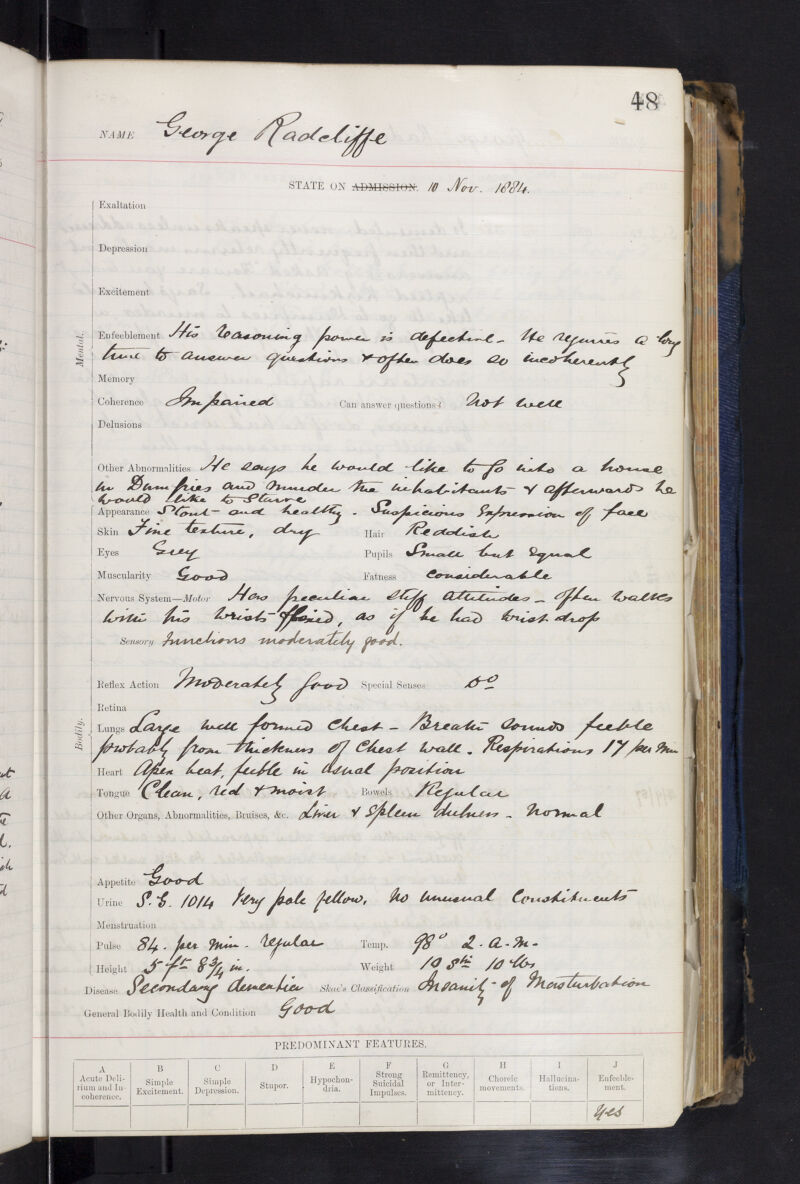 48
NAME George Radcliffe
STATE ON ADMISSION. 10 Nov. 1884.
Mental.
Exaltation
Depression
Excitement
Enfeeblement His reasoning power is defective - He requires a long
time to answer questions & often does so incoherently
Memory
Coherence Impaired Can answer questions? Not well
Delusions
Other Abnormalities He says he would like to go into a house
in Dumfries and murder the inhabitants & afterwards he
would like to starve
Bodily.
Appearance Stout and healthy. Suspicious Expression of face
Skin Fine texture, dry Hair Reddish
Eyes Grey Pupils Small but equal
Muscularity Good Fatness considerable
Nervous System—Motor Has peculiar stiff attitudes - often walks
with his wrists flexed, as if he had wrist-drop
Sensory functions moderately good.
Reflex Action Moderately good Special Senses Do
Retina
Lungs Large well formed chest - Breath sounds feeble
probably from thickness of chest wall. Respirations 17 per min
Heart Apex beat, feeble in usual position
Tongue Clean, red & moist Bowels Regular
Other Organs, Abnormalities, Bruises, &c. Liver & Spleen dulness - normal
Appetite Good
Urine S.G. 1014 Very pale yellow. No unusual Constituents
Menstruation
Pulse 84. per min. regular Temp. 98° 2. a.m.
Height 5 ft 8 3/4 in. Weight 10 st 10 lbs
Disease Secondary dementia Skae's Classification Insanity of Masturbation
General Bodily Health and Condition Good
PREDOMINANT FEATURES.
A B C D E F G H I J
Acute Delirium and Incoherence. Simple Excitement. Simple Depression. Stupor. Hypochondria. Strong Suicidal Impulses. Remittency, or Intermittency. Choreic movements. Hallucinations. Enfeeblement.
Yes